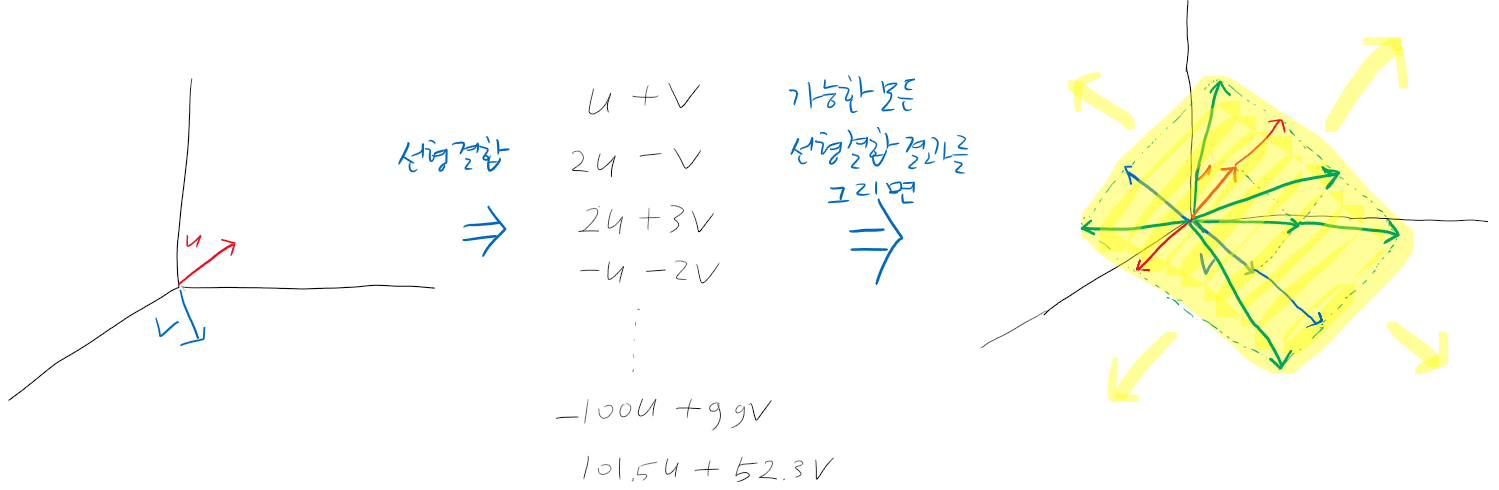 u
v
선형결합
⇒
u + v
2u - v
2u + 3v
-u - 2v
-100u + 99v
101.5u + 52.3v
가능한 모든
선형결합 결과를
그리면
⇒
v